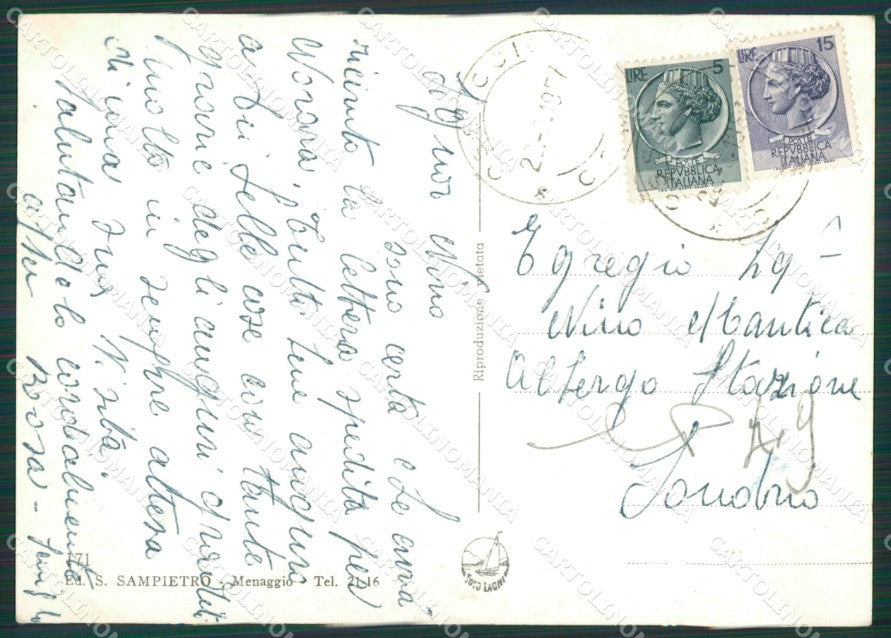 Signor Nino
sono certa che avrà
ricevuto la lettera spedita per
tutto bene auguri
a Lei belle cose con tante
grazie degli auguri graditi
molto in sempre attesa
di una sua Visita.
Salutandola cordialmente
Rosa
171
Ed. S. SAMPIETRO - Menaggio - Tel. 21-16
Riproduzione vietata
FOTO LAGHI
LIRE 5
POSTE
REPVBBLICA
ITALIANA
LIRE 15
POSTE
REPVBBLICA
ITALIANA
Egregio Sg
Nino Mantica
Albergo Stazione
Sondrio